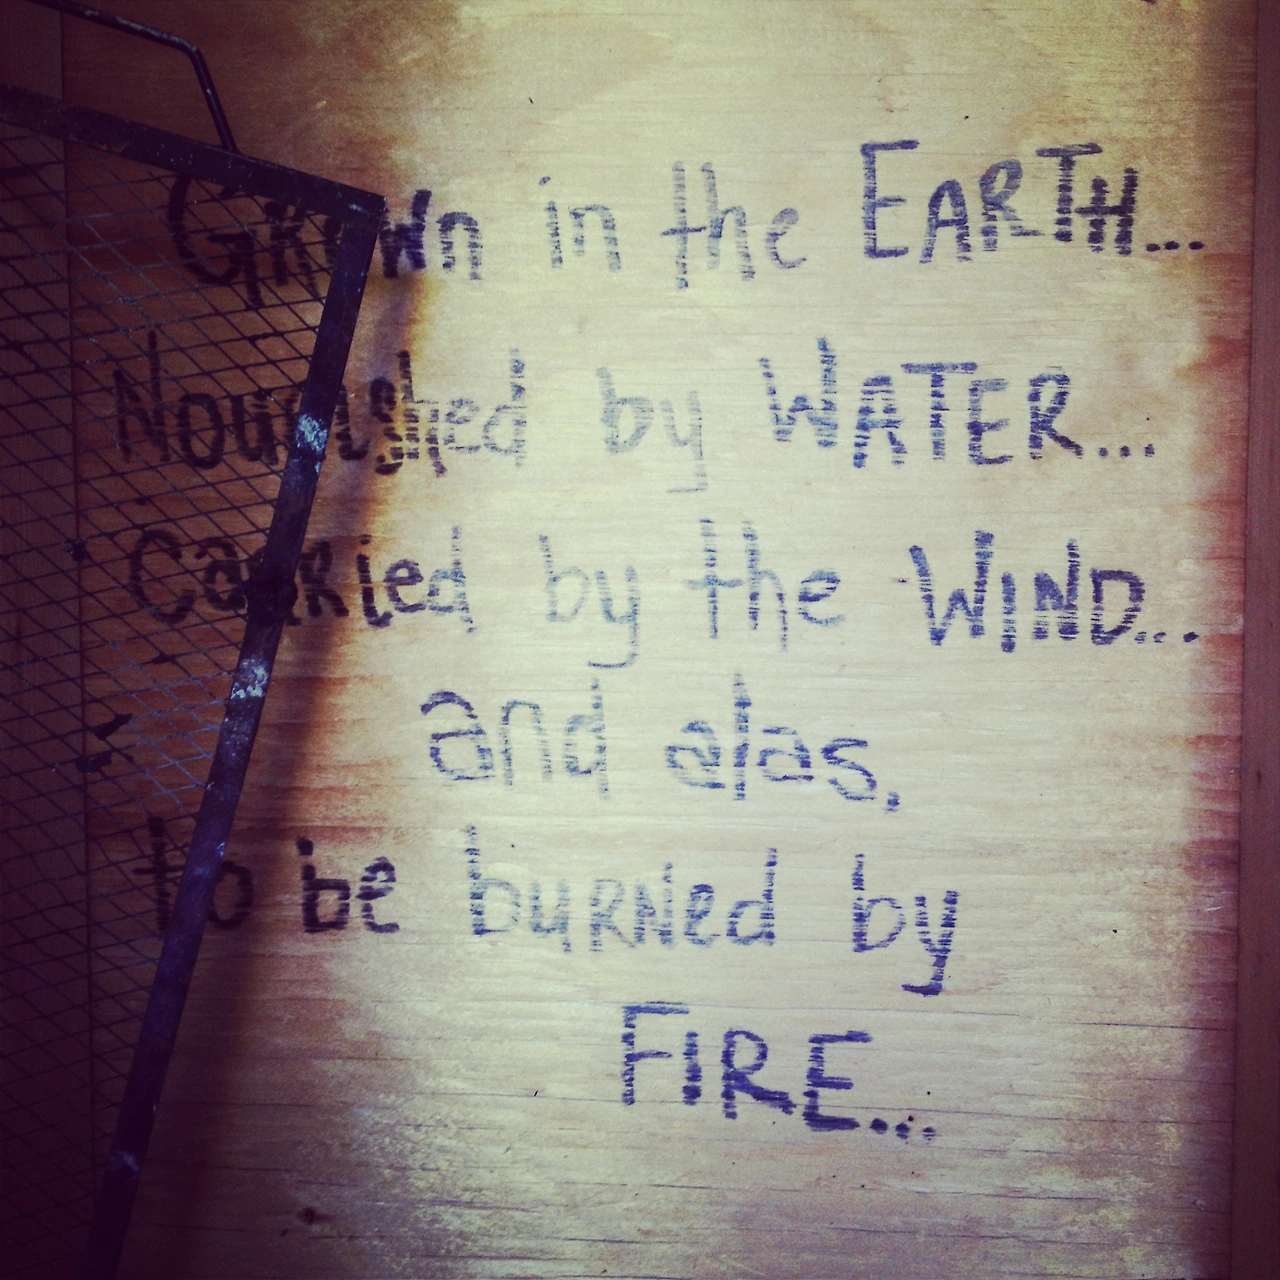 Grown in the EARTH...
Nourished by WATER...
Carried by the WIND...
and alas,
to be burned by
FIRE...